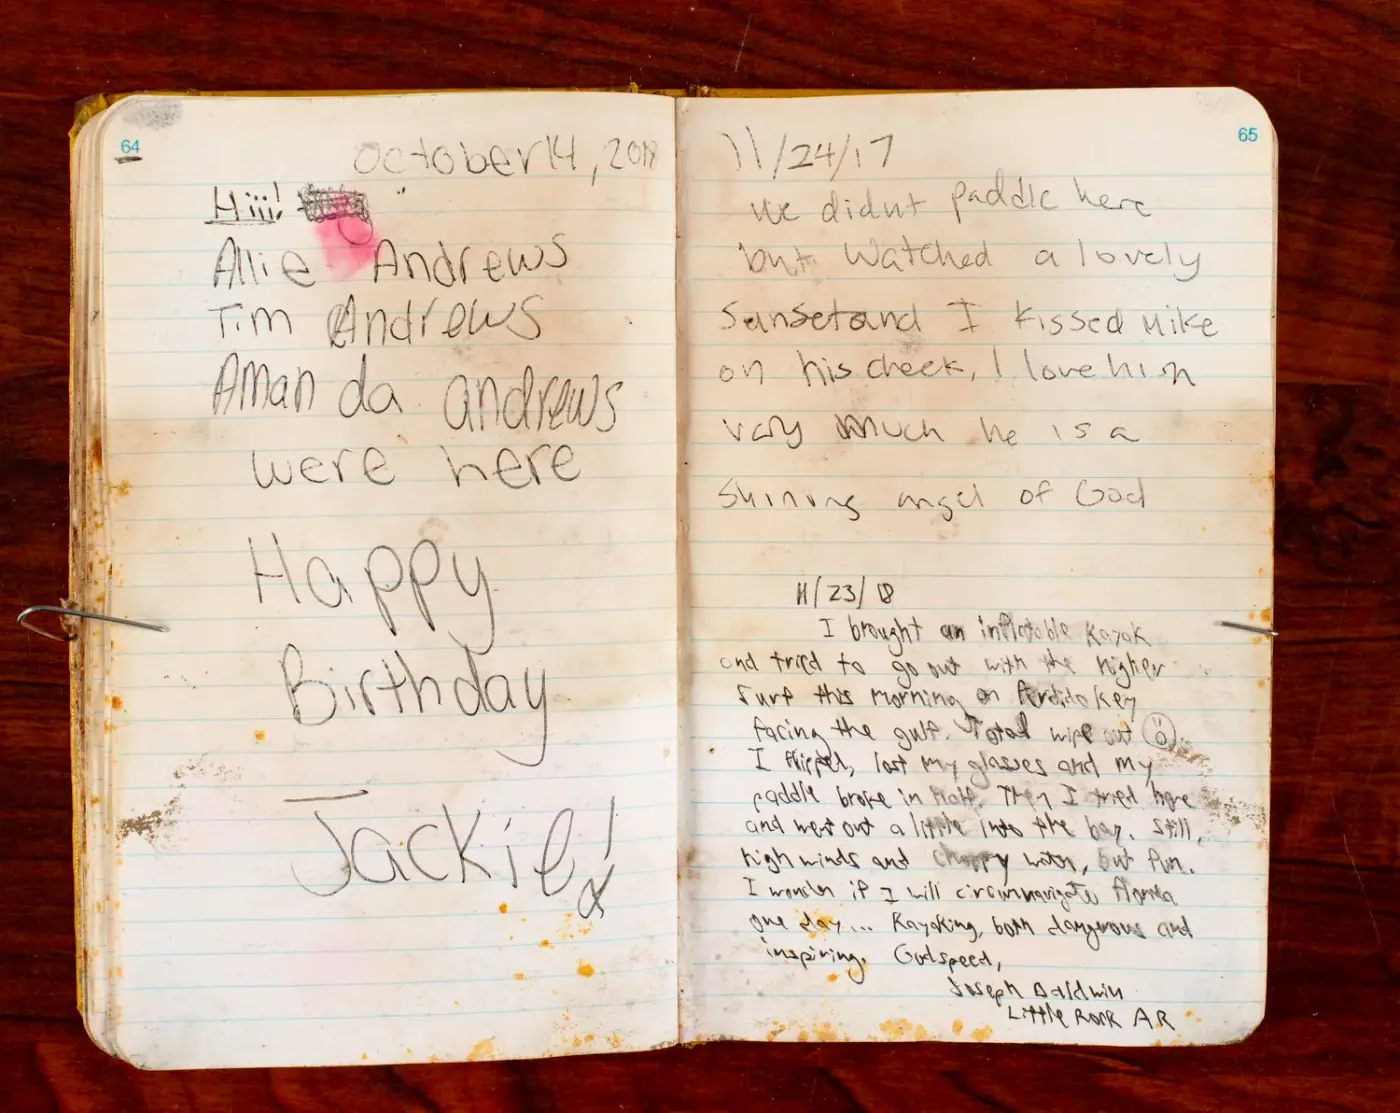 64
October 14, 2018
Hiii!
Allie Andrews
Tim Andrews
Amanda andrews
were here
Happy
Birthday
Jackie!
65
11/24/17
We didnt paddle here
but watched a lovely
Sunset and I kissed Mike
on his cheek, I love him
very much he is a
shining angel of God
11/23/18
I brought an inflatable kayak
and tried to go out with the higher
surf this morning on Perdido Key
facing the gulf. Total wipe out
I flipped, lost my glasses and my
paddle broke in half. Then I tried here
and went out a little into the bay. Still,
high winds and choppy water, but fun.
I wonder if I will circumnavigate Florida
one day... Kayaking, both dangerous and
inspiring. Godspeed,
Joseph Baldwin
Little Rock AR